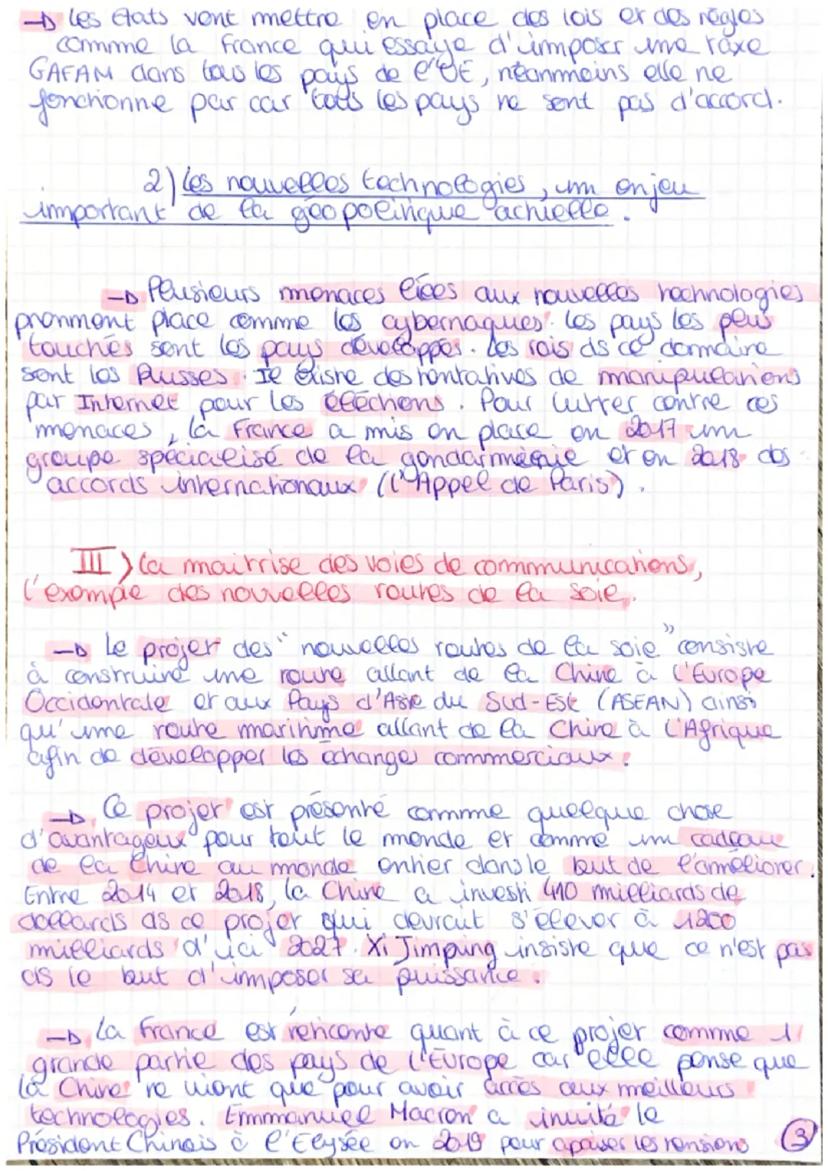 → Les états vont mettre en place des lois et des règles
comme la France qui essaye d'imposer une taxe
GAFAM dans tous les pays de l'UE, néanmoins elle ne
fonctionne pas car tous les pays ne sont pas d'accord.
2) Les nouvelles technologies, un enjeu
important de la géopolitique actuelle.
→ Plusieurs menaces liées aux nouvelles technologies
prennent place comme les cyberattaques. Les pays les plus
touchés sont les pays développés. Les rois ds ce domaine
sont les Russes. Il existe des tentatives de manipulations
par Internet pour les éléctions. Pour lutter contre ces
menaces, la France a mis en place en 2017 un
groupe spécialisé de la gendarmerie et en 2018 des
accords internationaux (l'Appel de Paris).
III) La maitrise des voies de communications,
l'exemple des nouvelles routes de la soie.
→ Le projet des "nouvelles routes de la soie" consiste
à construire une route allant de la Chine à l'Europe
Occidentale et aux Pays d'Asie du Sud-Est (ASEAN) ainsi
qu'une route maritime allant de la Chine à l'Afrique
afin de développer les échanges commerciaux.
→ Ce projet est présenté comme quelque chose
d'avantageux pour tout le monde et comme un cadeau
de la Chine au monde entier dans le but de l'améliorer.
Entre 2014 et 2018, la Chine a investi 410 milliards de
dollards ds ce projet qui devrait s'élever à 1200
milliards d'ici 2027. Xi Jimping insiste que ce n'est pas
ds le but d'imposer sa puissance.
→ La France est réticente quant à ce projet comme 1
grande partie des pays de l'Europe car elle pense que
la Chine ne vient que pour avoir accès aux meilleurs
technologies. Emmanuel Macron a invité le
Président Chinois à l'Elysée en 2019 pour apaiser les tensions
3